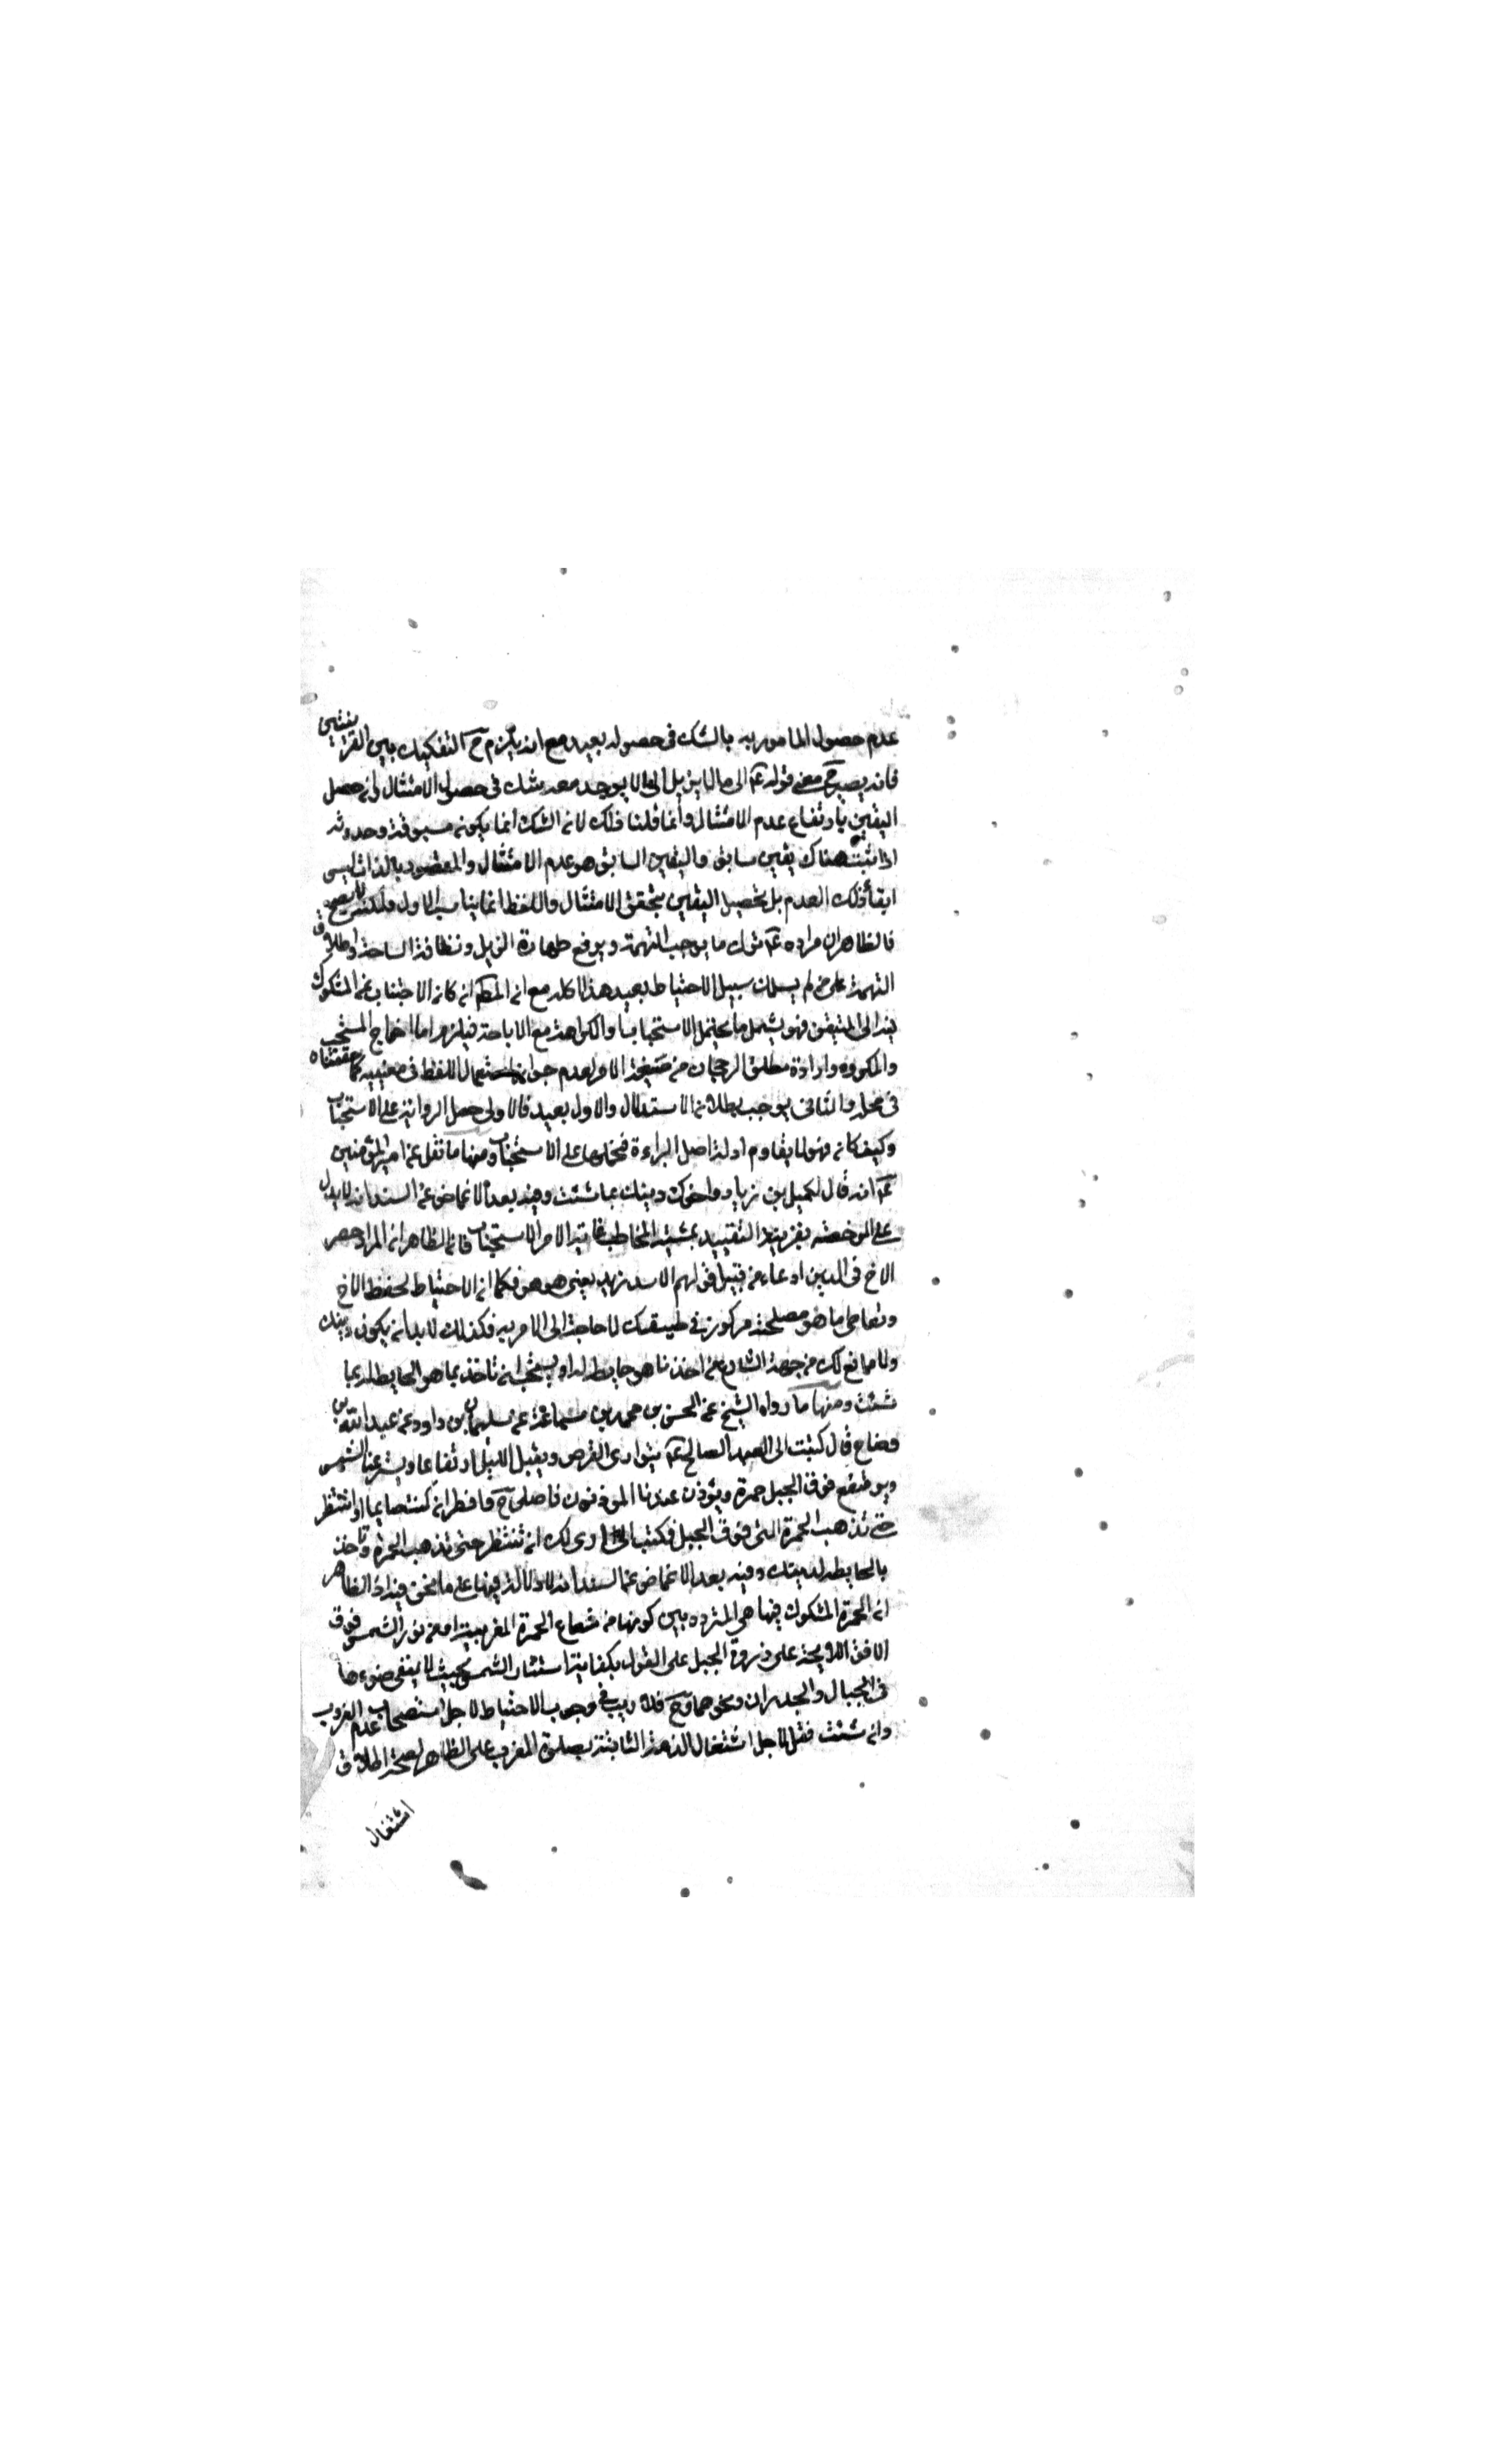 عدم حصول المامور به بالشك فى حصوله بعيد مع انه يلزم ح التفكيك بين القرينتين
فانه يصير ح معنى قوله ع الى ما لا يريبك الى ما لا يوجد معه شك فى حصول الامتثال وان حصل
اليقين بارتفاع عدم الامتثال وانما قلنا ذلك لان الشك انما يكون مسبوقة وحدوثه
اذا ثبت هناك يقين سابق واليقين السابق هو عدم الامتثال والمقصود بالذات ليس
ابقاء ذلك العدم بل تحصيل اليقين بتحقق الامتثال واللفظ انما يناسب الاول
فالظاهر ان مراده ع ترك ما يوجب التهمة ويرفع طهارة الذيل ونظافة الساحة واطلاق
التهمة على من لم يسلك سبيل الاحتياط بعيد هذا كله مع ان الحكم ان كان الاجتناب عن المشكوك
فيه الى المتيقن فهو يشمل ما يحتمل الاستحباب والكراهة مع الاباحة فيلزم اما اخراج المستحب
والمكروه وارادة مطلق الرجحان من صيغة الامر لعدم جواز استعمال اللفظ فى معنييه كما حققناه
فى محله والثانى يوجب بطلان الاستدلال والاول بعيد فالاولى حمل الرواية على الاستحباب
وكيف كان فهو لا يقاوم ادلة اصل البراءة فيحمل على الاستحباب ومنها ما نقل عن امير المؤمنين
ع انه قال لكميل بن زياد واخوك دينك بما شئت وفيه بعد الاغماض عن السند انه لا يدل
على بقرينة التقييد بمشية المخاطب غاية الامر الاستحباب فان الظاهر ان المراد حصر
الاخ فى الدين ادعاء من قبيل قولهم الاسد زيد يعنى هو هو فكما ان الاحتياط لحفظ الاخ
وتعاطى ما هو مصلحة مركوز فى طبيعتك لا حاجة الى الامر به فكذلك لا بد ان يكون دينك
ولا مانع لك من جهة الشارع من اخذ ما هو حايطه له او يستحب ان تاخذ بما هو الحايطة له بما
شئت ومنها ما رواه الشيخ عن الحسن بن محمد بن سماعة عن سليمان بن داود عن عبد الله بن
وضاح قال كتبت الى العبد الصالح ع يتوارى القرص ويقبل الليل ارتفاعا ويستر عنا الشمس
ويرتفع فوق الجبل حمرة ويؤذن عندنا المؤذنون فاصلى ح وافطر ان كنت صايما او انتظر
حتى تذهب الحمرة التى فوق الجبل فكتب الى ارى لك ان تنتظر حتى تذهب الحمرة وتاخذ
بالحايطه لدينك وفيه بعد الاغماض عن السند انه لا دلالة فيها على ما نحن فيه اذ الظاهر
ان الحمرة المشكوك فيها هى المتردده بين كونها من شعاع الحمرة المغربية او من نور الشمس فوق
الافق اللايحة على ذروة الجبل على القول بكفاية استتار الشمس بحيث لا يبقى ضوءها
فى الجبال والجدران ونحوهما وح فلا ريب فى وجوب الاحتياط لاجل استصحاب عدم الغروب
وان شئت فقل لاجل اشتغال الذمة الثابتة بصلوة المغرب على الظاهر لصحة اطلاق
اشتغال